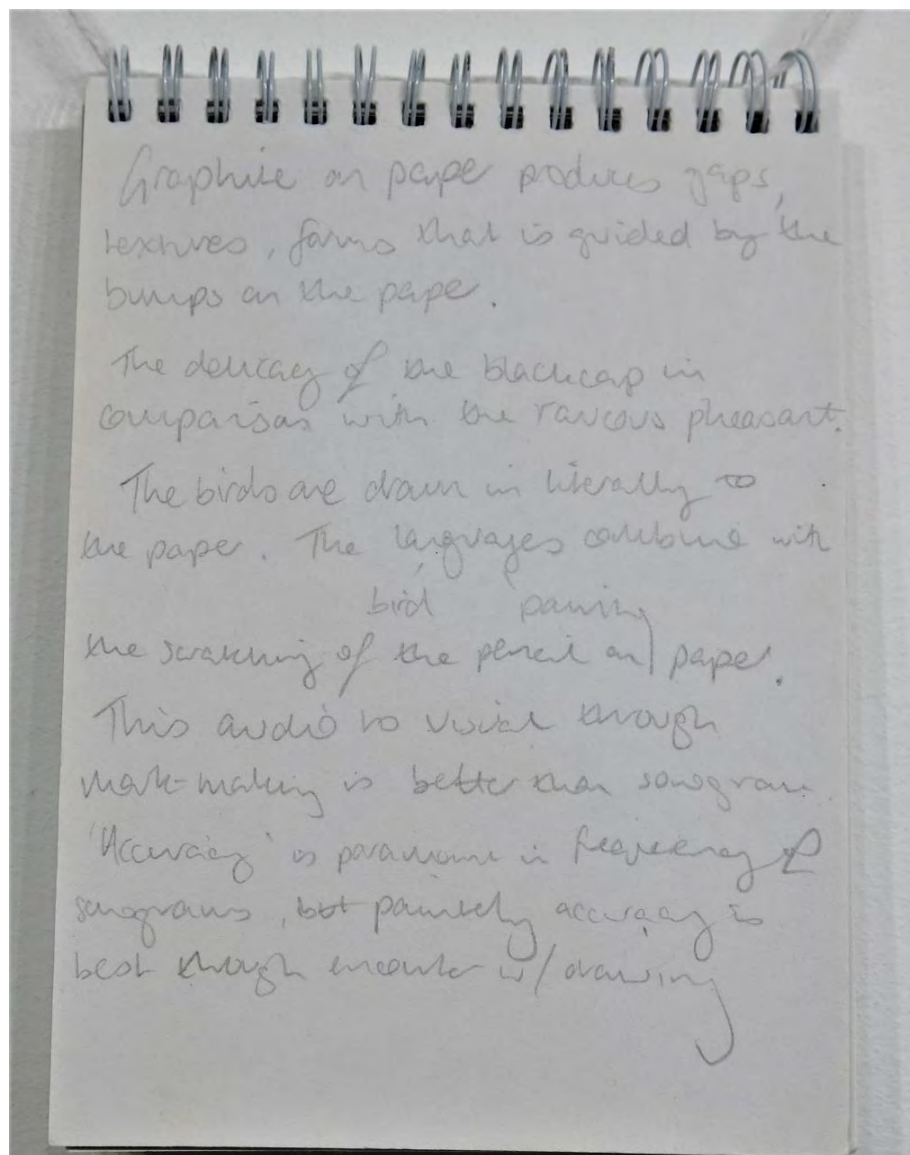 Graphite on paper produces gaps,
textures, forms that is guided by the
bumps on the paper.
The delicacy of the blackcap in
comparison with the raucous pheasant.
The birds are drawn in literally to
the paper. The languages combine with
bird
the scratching of the pencil on paper.
This audio to visual through
mark-making is better than sonogram.
'Accuracy' is paramount in frequency of
sonograms, but painterly accuracy is
best through encounter w/ drawing